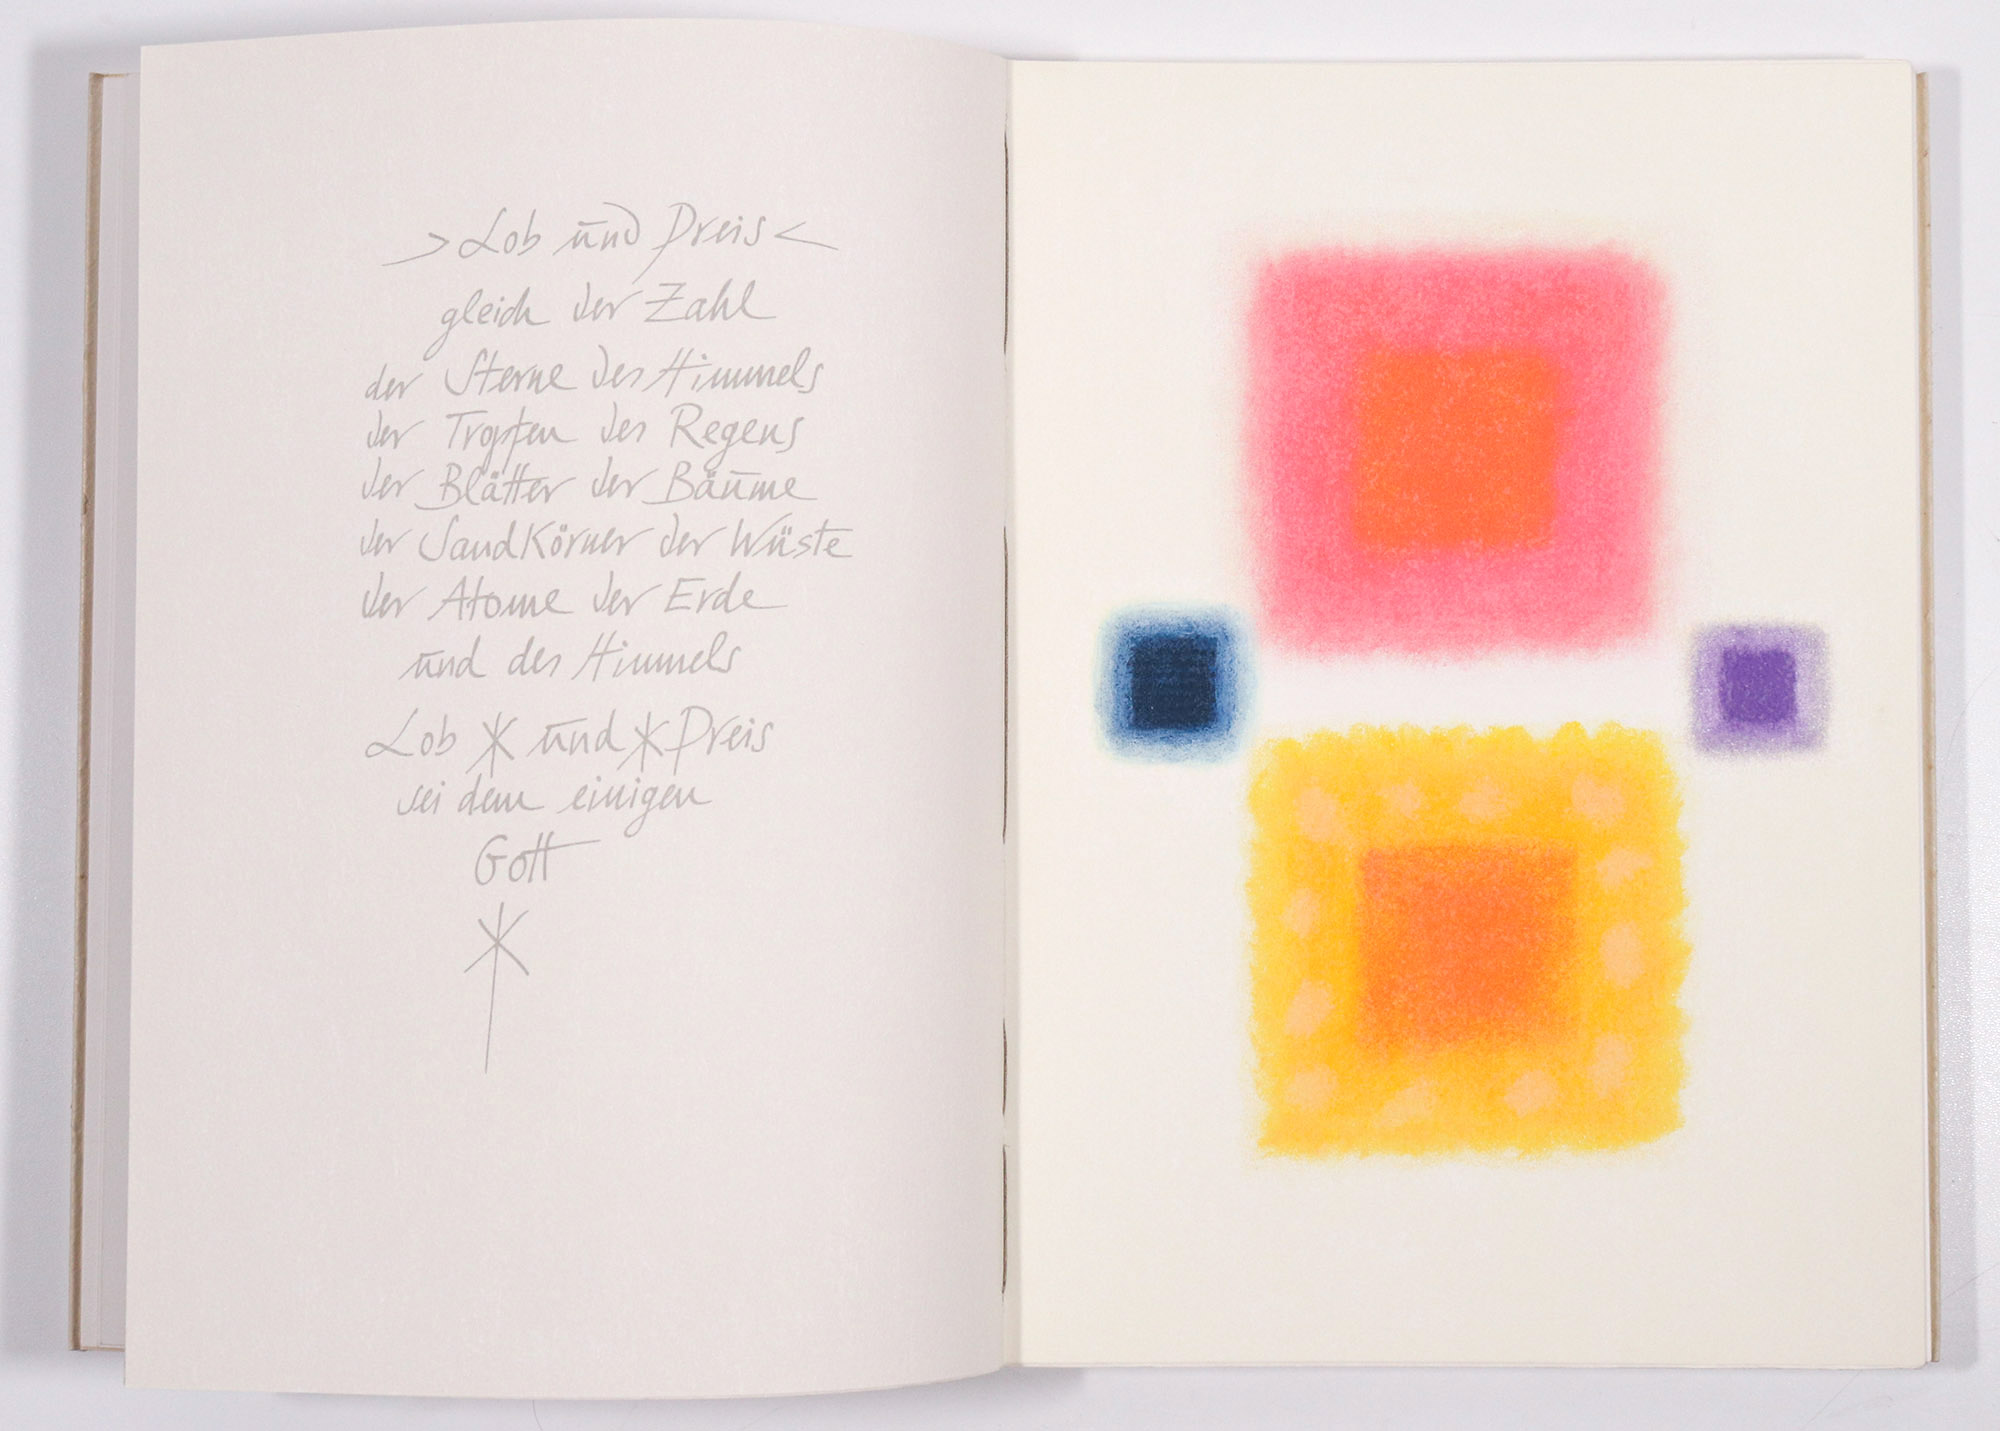 >Lob und Preis<
gleich der Zahl
der Sterne des Himmels
der Tropfen des Regens
der Blätter der Bäume
der Sandkörner der Wüste
der Atome der Erde
und des Himmels
Lob * und * Preis
sei dem einigen
Gott
*